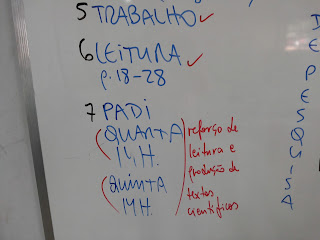 5 TRABALHO ✓
6 LEITURA ✓
p. 18-28
7 PADI
QUARTA
14H.
QUINTA
14H.
reforço de
leitura e
produção de
textos
científicos
D
E
P
E
S
Q
U
I
S
A